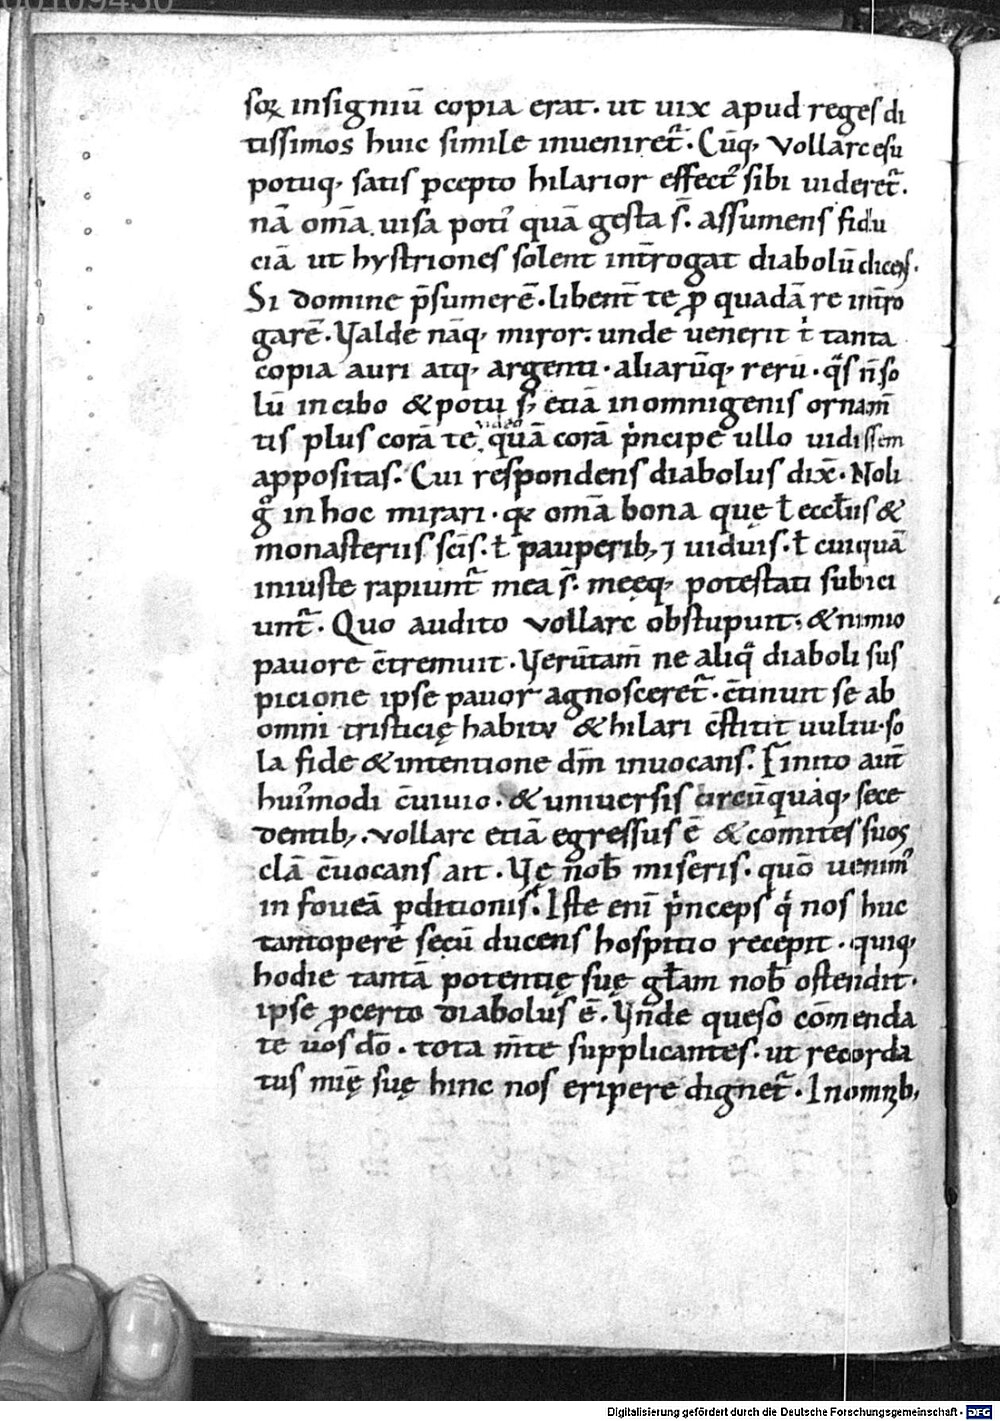 soꝝ insigniū copia erat. ut uix apud reges di
tissimos huic simile inueniret᷑. Cūq; vollarc esu
potuq; satis p̄cepto hilarior effect᷒ sibi uideret᷑.
nā om̄a uisa poti᷒ quā gesta s̄. assumens fidu
ciā ut hystriones solent int̄rogat diabolū dicens.
Si domine p̄sumerē. libent̄ te ꝓ quadā re int̄ro
garē. Valde nāq; miror. unde uenerit t' tanta
copia auri atq; argenti. aliarūq; rerū. q̄s n̄ so
lū in cibo & potu s; etiā in omnigenis ornam̄
tis plus corā te video quā corā p'ncipe ullo uidissem
appositas. Cui respondens diabolus dix̄. Noli
g° in hoc mirari. q; om̄a bona quę ł eccl̄iis &
monasteriis sc̄is. ł pauperib; ⁊ uiduis. ł cuiquā
iniuste rapiunt᷑ mea s̄. meęq; potestati subici
unt᷑. Quo audito vollarc obstupuit; & nimio
pauore c̄tremuit. Verūtam̄ ne aliq̄ diaboli sus
picione ipse pauor agnosceret᷑. c̄tinuit se ab
omni tristicię habitu & hilari c̄stitit uultu. so
la fide & intentione dm̄ inuocans. Finito aut̄
hui᷒modi c̄uiuio. & uniuersis circūquaq; sece
dentib; . vollarc etiā egressus ē & comites suos
clā c̄uocans ait. Vę nob̄ miseris. quō uenim᷒
in foueā p̄ditionis. Iste eni p'nceps q' nos huc
tantopere secū ducens hospitio recepit. quiq;
hodie tantā potentię suę gl̄am nob̄ ostendit.
ipse p̄certo diabolus ē. Vnde queso com̄enda
te uos do̅. tota m̄te supplicantes. ut recorda
tus mię̄ suę hinc nos eripere dignet᷑. In omīb;